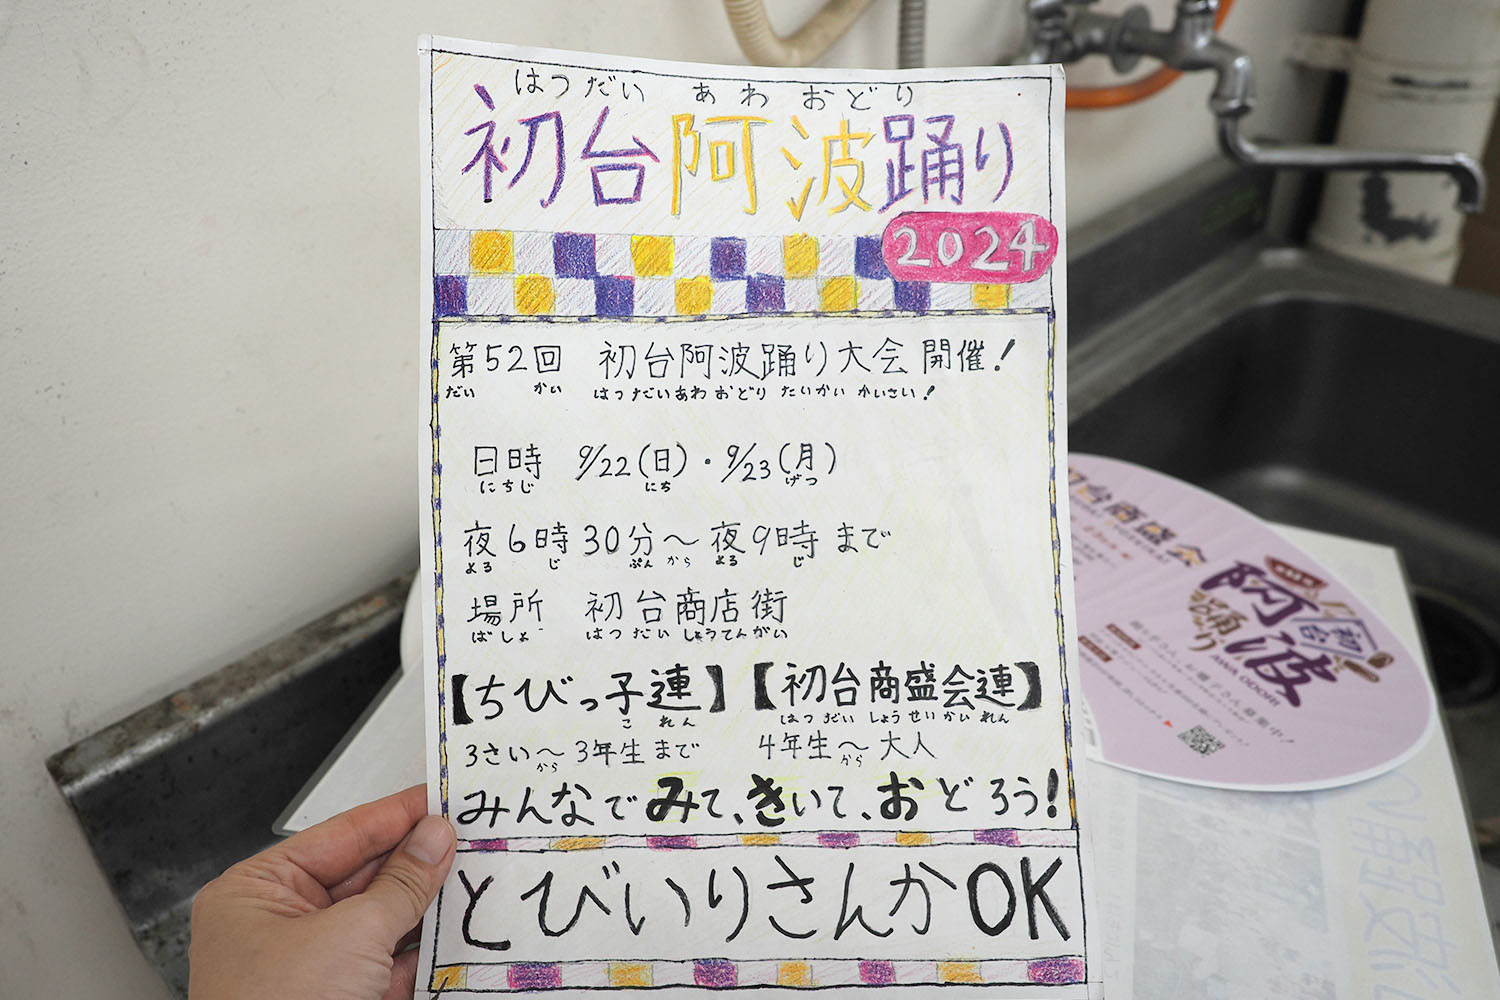 はつだい あわ おどり
初台阿波踊り
2024
第52回 初台阿波踊り大会 開催！
だい かい はつだいあわ おどり たいかい かいさい！
日時 9/22(日)・9/23(月)
にちじ にち げつ
夜6時30分〜夜9時まで
よる じ ぷん から よる じ
場所 初台商店街
ばしょ はつ だい しょうてんがい
【ちびっ子連】【初台商盛会連】
こ れん はつ だい しょう せい かい れん
3さい〜3年生まで 4年生〜大人
から から
みんなでみて、きいて、おどろう！
とびいりさんかOK
初台商盛会
阿波
踊り
初台
AWA ODORI